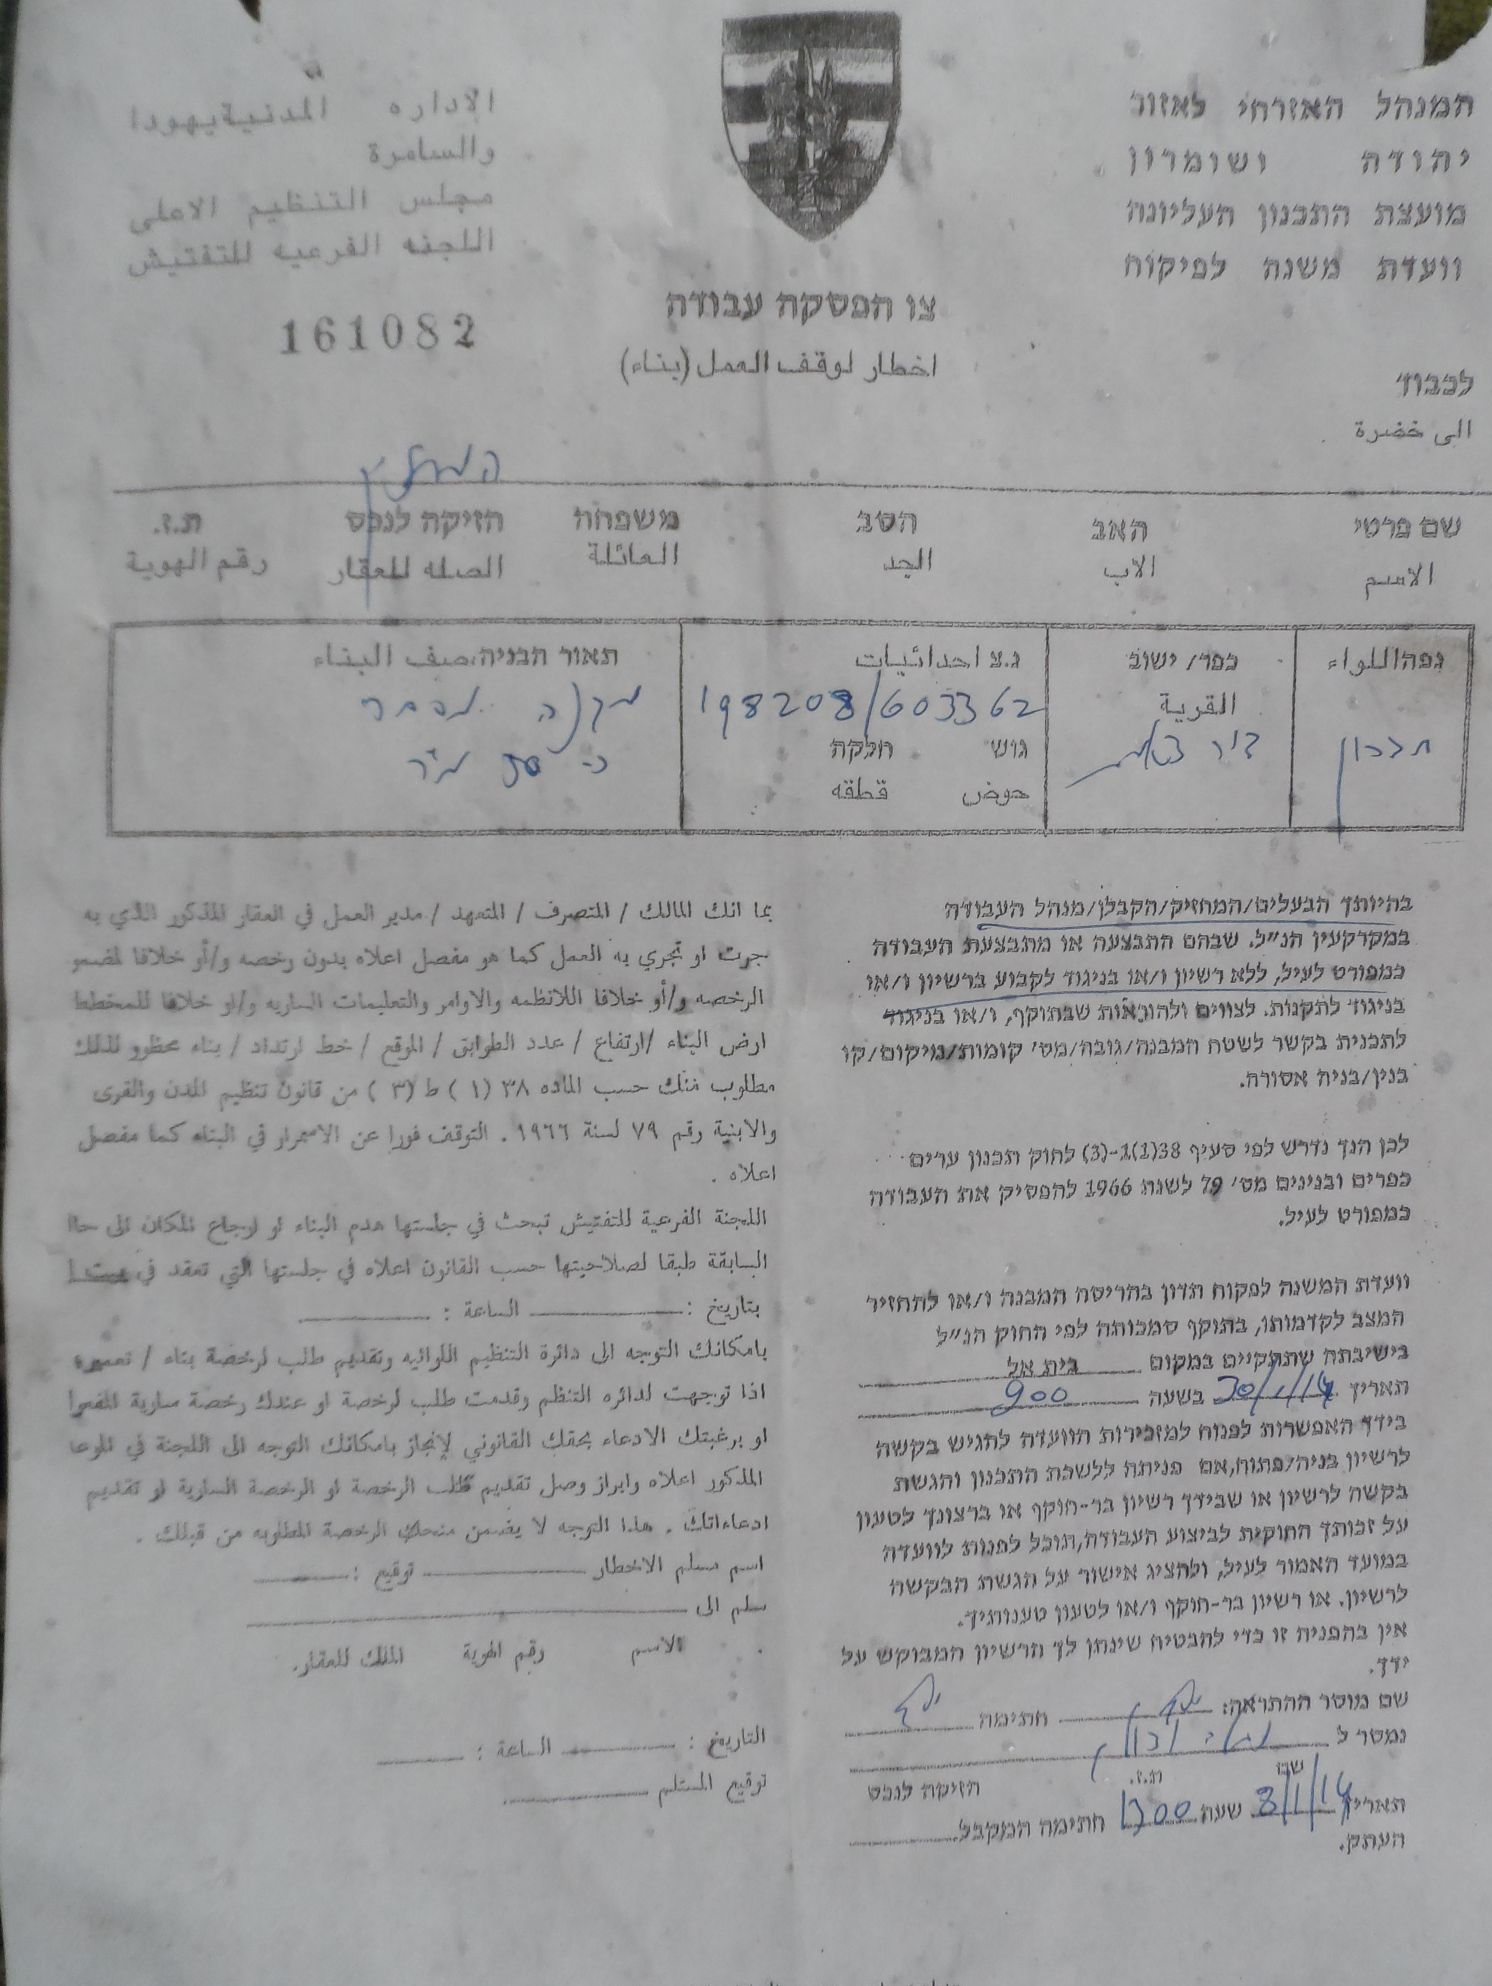 המנהל האזרחי לאזור
יהודה ושומרון
מועצת התכנון העליונה
וועדת משנה לפיקוח
الاداره المدنية يهودا
والسامرة
مجلس التنظيم الاعلى
اللجنه الفرعيه للتفتيش
161082
צו הפסקה עבודה
اخطار لوقف العمل (بناء)
לכבוד
الى حضرة
שם פרטי האב הסב משפחה חזיקה לנכס ת.ז.
الاسم الاب الجد العائلة الصله للعقار رقم الهوية
נפה اللواء כפר/ישוב נ.צ احداثيات תאור הבניה، صيف البناء
القرية 198208/603362
חברון גוש חלקה
حوض قطقه
בהיותך הבעלים/המחזיק/הקבלן/מנהל העבודה
במקרקעין הנ"ל. שבהם התבצעה או מתבצעת העבודה
כמפורט לעיל, ללא רשיון ו/או בניגוד לקבוע ברשיון ו/או
בניגוד לתקנות. לצווים ולהוראות שבתוקף, ו/או בניגוד
לתכנית בקשר לשטח המבנה/גובה/מס' קומות/מיקום/קו
בנין/בניה אסורה.
לכן הנך נדרש לפי סעיף 38(1)1-(3) לחוק תכנון ערים
כפרים ובנינים מס' 79 לשנת 1966 להפסיק את העבודה
כמפורט לעיל.
וועדת המשנה לפקוח תדון בהריסת המבנה ו/או להחזיר
המצב לקדמותו, בתוקף סמכותה לפי החוק הנ"ל
בישיבתה שתתקיים במקום בית אל
תאריך 30/1/14 בשעה 900
בידך האפשרות לפנות למזכירות הוועדה להגיש בקשה
לרשיון בניה/פתוח, אם פניתה ללשכת התכנון והגשת
בקשה לרשיון או שבידך רשיון בר-תוקף או ברצונך לטעון
על זכותך החוקית לביצוע העבודה, תוכל לפנות לוועדה
במועד האמור לעיל, ולהציג אישור על הגשת הבקשה
לרשיון. או רשיון בר-תוקף ו/או לטעון טענותיך.
אין בהפניה זו כדי להבטיח שינתן לך הרשיון המבוקש על
ידך.
שם מוסר ההתראה: חתימה
נמסר ל
שם ת.ז. חזיקה לנכס
תאריך 8/1/14 שעה 1300 חתימה המקבל
העתק.
بما انك المالك / المتصرف / المتعهد / مدير العمل في العقار المذكور الذي به
جرت او تجري به العمل كما هو مفصل اعلاه بدون رخصه و/أو خلافا لمضمو
الرخصه و/أو خلافا اللانظمه والاوامر والتعليمات الساريه و/او خلافا للمخطط
ارض البناء /ارتفاع / عدد الطوابق / الموقع / خط ارتداد / بناء محظور لذلك
مطلوب منك حسب الماده ٣٨ (١) ط (٣) من قانون تنظيم المدن والقرى
والابنية رقم ٧٩ لسنة ١٩٦٦ . التوقف فورا عن الاستمرار في البناء كما مفصل
اعلاه .
اللجنة الفرعية للتفتيش تبحث في جلستها هدم البناء او ارجاع المكان الى حالا
السابقة طبقا لصلاحيتها حسب القانون اعلاه في جلستها التي تعقد في
بتاريخ : الساعة :
بامكانك التوجه الى دائرة التنظيم اللوائيه وتقديم طلب لرخصة بناء / تعميره
اذا توجهت لدائره التنظم وقدمت طلب لرخصة او عندك رخصة سارية المفعوا
او برغبتك الادعاء بحقك القانوني لإنجاز بامكانك التوجه الى اللجنة في الموعا
المذكور اعلاه وابراز وصل تقديم طلب الرخصة او الرخصة السارية او تقديم
ادعاءاتك . هذا التوجه لا يضمن منحك الرخصة المطلوبه من قبلك .
اسم مسلم الاخطار توقيع :
سلم الى
الاسم رقم الهوية الملك للعقار.
التاريخ : الساعة :
توقيع المستلم